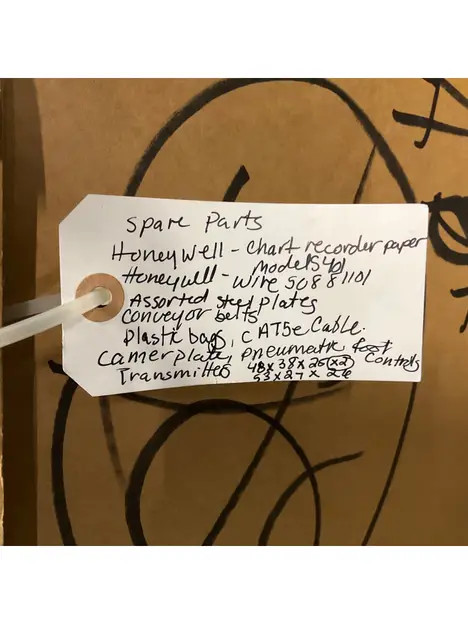 Spare Parts
Honeywell - Chart recorder paper
Model 5401
Honeywell - Wire 50881101
Assorted steel plates
Conveyor belts
Plastic bags, CAT5e Cable.
Camer plate, pneumatic foot Controls
Transmitter 48 x 38 x 26 (x2)
53 x 27 x 26